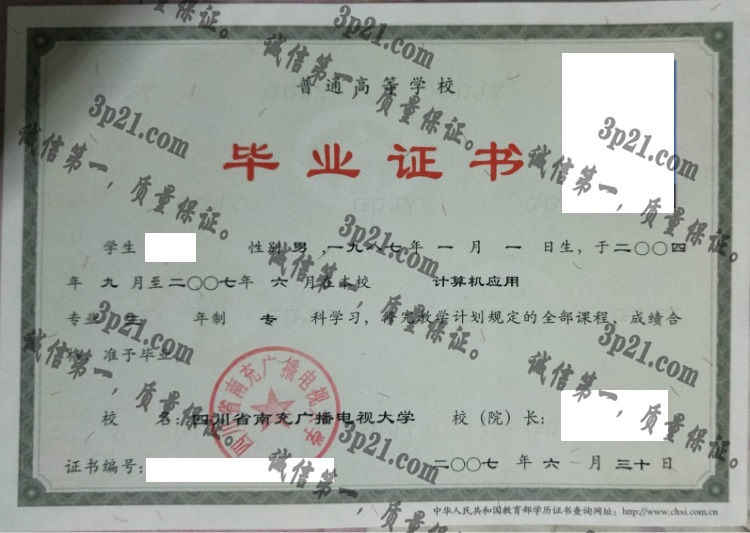 普通高等学校
毕业证书
学生 性别 男 ,一九八七年 一 月 一 日生,于二〇〇四
年 九 月至二〇〇七年 六 月在本校 计算机应用
专业 三 年制 专 科学习,修完教学计划规定的全部课程,成绩合
格,准予毕业。
校 名:四川省南充广播电视大学 校(院)长:
证书编号: 二〇〇七 年 六 月 三十 日
中华人民共和国教育部学历证书查询网址:http://www.chsi.com.cn
四川省南充广播电视大学
3p21.com
诚信第一,质量保证。
3p21.com
诚信第一,质量保证。
3p21.com
诚信第一,质量保证。
3p21.com
诚信第一,质量保证。
3p21.com
诚信第一,质量保证。
3p21.com
诚信第一,质量保证。
3p21.com
诚信第一,质量保证。
质量保证。